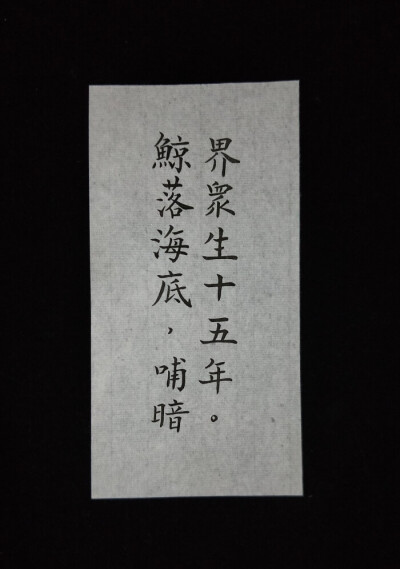 鯨落海底，哺暗
界眾生十五年。